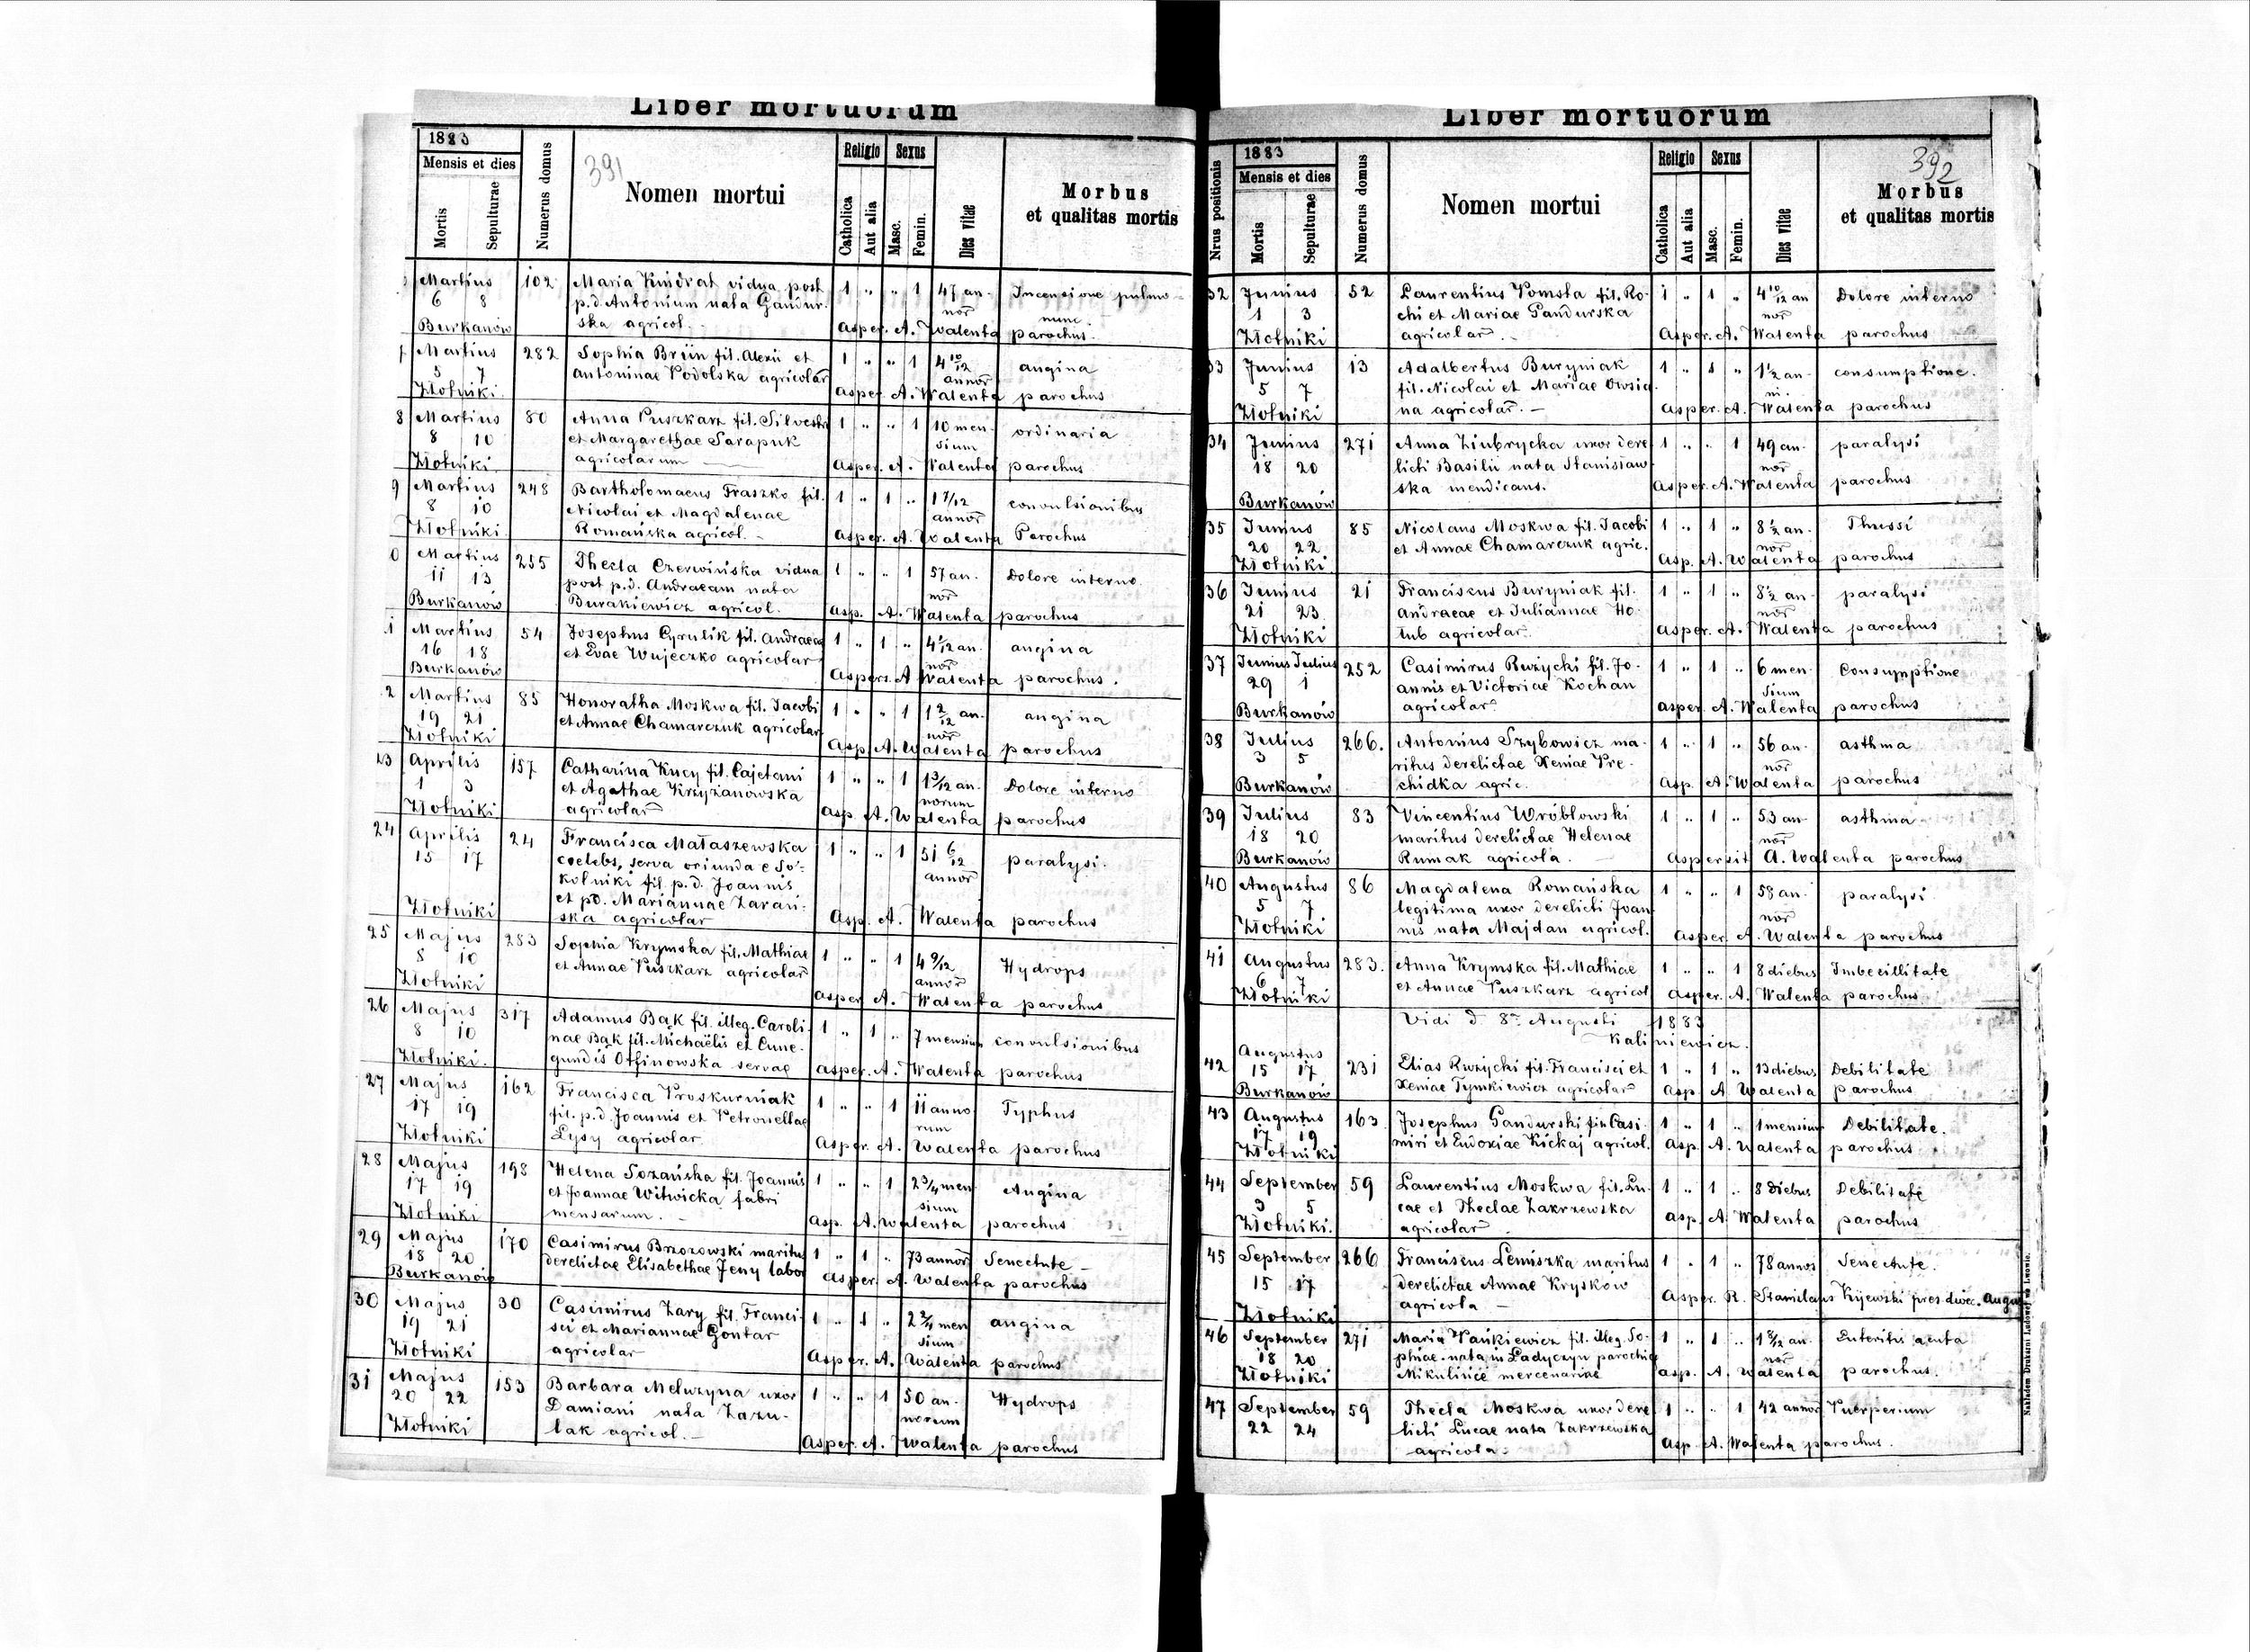 Liber mortuorum
1883
Mensis et dies
Mortis
Sepulturae
Numerus domus
391
Nomen mortui
Religio
Catholica
Aut alia
Sexus
Masc.
Femin.
Dies vitae
Morbus
et qualitas mortis
Martius 102 Maria Kindrat vidua post 1 " " 1 47 an- Incensione pulmo-
6 8 p.d. Antonium nata Gandur- nor̄ num.
Burkanów ska agricol. Asper. A. Walenta parochus.
Martius 282 Sophia Brün fil. Alexii et 1 " " 1 4 10/12 angina
5 7 Antoninae Podolska agricolar̄ annor̄
Złotniki Asper. A. Walenta parochus
8 Martius 80 Anna Puszkarz fil. Silvestri 1 " " 1 10 men- ordinaria
8 10 et Margarethae Sarapuk sium
Złotniki agricolarum Asper. A. Walenta parochus
9 Martius 248 Bartholomaeus Fraszko fil. 1 " 1 " 1 7/12 convulsionibus
8 10 Nicolai et Magdalenae annor̄
Złotniki Romańska agricol. Asper. A. Walenta Parochus
0 Martius 255 Thecla Czerwińska vidua 1 " " 1 57 an. Dolore interno
11 13 post p.d. Andraeam nata nor̄
Burkanów Burakiewicz agricol. Asp. A. Walenta parochus
1 Martius 54 Josephus Cyrulik fil. Andraeae 1 " 1 " 4 1/12 an. angina
16 18 et Evae Wujeczko agricolar̄ nor̄
Burkanów Aspers. A. Walenta parochus.
2 Martius 85 Honoratha Moskwa fil. Jacobi 1 " " 1 1 2/12 an. angina
19 21 et Annae Chamarczuk agricolar̄ nor̄
Złotniki Asp. A. Walenta parochus
23 Aprilis 157 Catharina Kucy fil. Cajetani 1 " " 1 1 3/12 an. Dolore interno
1 3 et Agathae Krzyżanowska norum
Złotniki agricolar̄ Asp. A. Walenta parochus
24 Aprilis 24 Francisca Małaszewska 1 " " 1 51 6/12 paralysi.
15 17 coelebs, serva oriunda e So- annor̄
kolniki fil. p.d. Joannis
et pd. Mariannae Zarań-
Złotniki ska agricolar Asp. A. Walenta parochus
25 Majus 283 Sophia Krymska fil. Mathiae 1 " " 1 4 9/12 Hydrops
8 10 et Annae Puszkarz agricolar̄ annor̄
Złotniki Asper. A. Walenta parochus
26 Majus 317 Adamus Bąk fil. illeg. Caroli- 1 " 1 " 7 mensium convulsionibus
8 10 nae Bąk fil. Michaëlis et Cune-
Złotniki. gundis Otfinowska servae Asper. A. Walenta parochus
27 Majus 162 Francisca Proskurniak 1 " " 1 11 anno- Typhus
17 19 fil. p.d. Joannis et Petronellae rum
Złotniki Lysy agricolar. Asper. A. Walenta parochus
28 Majus 198 Helena Sozańska fil. Joannis 1 " " 1 2 3/4 men- Angina
17 19 et Joannae Witwicka fabri sium
Złotniki mensarum. Asp. A. Walenta parochus
29 Majus 170 Casimirus Brzozowski maritus 1 " 1 " 73 annor̄ Senectute-
18 20 derelictae Elisabethae Jeny labor
Burkanów Asper. A. Walenta parochus
30 Majus 30 Casimirus Zary fil. Franci- 1 " 1 " 2 2/4 men angina
19 21 sci et Mariannae Gontar sium
Złotniki agricolar Asper. A. Walenta parochus
31 Majus 153 Barbara Meluzyna uxor 1 " " 1 50 an- Hydrops
20 22 Damiani nata Zazu- norum
Złotniki lak agricol. Asper. A. Walenta parochus
Liber mortuorum
Nrus positionis
1883
Mensis et dies
Mortis
Sepulturae
Numerus domus
Nomen mortui
Religio
Catholica
Aut alia
Sexus
Masc.
Femin.
Dies vitae
392
Morbus
et qualitas mortis
32 Junius 52 Laurentius Pomsta fil. Ro- 1 " 1 " 4 10/12 an Dolore interno
1 3 chi et Mariae Gandurska nor̄
Złotniki agricolar̄. Asper. A. Walenta parochus
33 Junius 13 Adalbertus Buryniak 1 " 1 " 1 1/2 an- consumptione.
5 7 fil. Nicolai et Mariae Owsia- ni.
Złotniki na agricolar̄. Asper. A. Walenta parochus
34 Junius 271 Anna Ziubrycka uxor dere- 1 " " 1 49 an- paralysi
18 20 licti Basilii nata Stanisław- nor̄
Burkanów ska mendicans. Asper. A. Walenta parochus
35 Junius 85 Nicolaus Moskwa fil. Jacobi 1 " 1 " 8 1/2 an- Thussi
20 22 et Annae Chamarczuk agric. nor̄
Złotniki Asp. A. Walenta parochus
36 Junius 21 Franciscus Buryniak fil. 1 " 1 " 8 1/2 an- paralysi
21 23 Andraeae et Juliannae Ho- nor̄
Złotniki łub agricolar. Asper. A. Walenta parochus
37 Junius Julius 252 Casimirus Rużycki fil. Jo- 1 " 1 " 6 men- Consumptione
29 1 annis et Victoriae Kochan sium
Burkanów agricolar̄ Asper. A. Walenta parochus
38 Julius 266. Antonius Szybowicz ma- 1 " 1 " 56 an- asthma
3 5 ritus derelictae Xeniae Pre- nor̄
Burkanów chidka agric. Asp. A. Walenta parochus
39 Julius 83 Vincentius Wróblowski 1 " 1 " 53 an- asthma
18 20 maritus derelictae Helenae nor̄
Burkanów Rumak agricola. Aspersit A. Walenta parochus
40 Augustus 86 Magdalena Romańska 1 " " 1 58 an- paralysi
5 7 legitima uxor derelicti Joan- nor̄
Złotniki nis nata Majdan agricol. Asper. A. Walenta parochus
41 Augustus 283. Anna Krymska fil. Mathiae 1 " " 1 8 diebus Imbecillitate
6 7 et Annae Puszkarz agricol
Złotniki Asper. A. Walenta parochus
Vidi d. 8va Augusti 1883
Kaliniewicz.
42 Augustus
15 17 231 Elias Rużycki fil. Francisci et 1 " 1 " 13 diebus Debilitate
Burkanów Xeniae Tymkiewicz agricolar̄ Asp A. Walenta parochus
43 Augustus 163 Josephus Gandurski fil. Casi- 1 " 1 " 1 mensium Debilitate.
17 19 miri et Eudoxiae Kickaj agricol.
Złotniki Asp. A. Walenta parochus
44 September 59 Laurentius Moskwa fil. Lu- 1 " 1 " 8 diebus Debilitate
3 5 cae et Theclae Zakrzewska
Złotniki. agricolar̄ Asp. A. Walenta parochus
45 September 266 Franciscus Leniszka maritus 1 " 1 " 78 annor Senectute.
15 17 derelictae Annae Kryśków
Złotniki agricola Asper. R. Stanilaus Kijewski
46 September 271 Maria Pańkiewicz fil. illeg. So- 1 " 1 " 1 3/12 an. Enteritis acuta
18 20 phiae nata in Ladyczyn parochia nor̄
Złotniki Mikulińce mercenariae Asp. A. Walenta parochus.
47 September 59 Thecla Moskwa uxor dere- 1 " " 1 42 annor̄ Puerperium
22 24 licti Lucae nata Zakrzewska
agricola. Asp. A. Walenta parochus.
Nakładem Drukarni Ludowej we Lwowie.